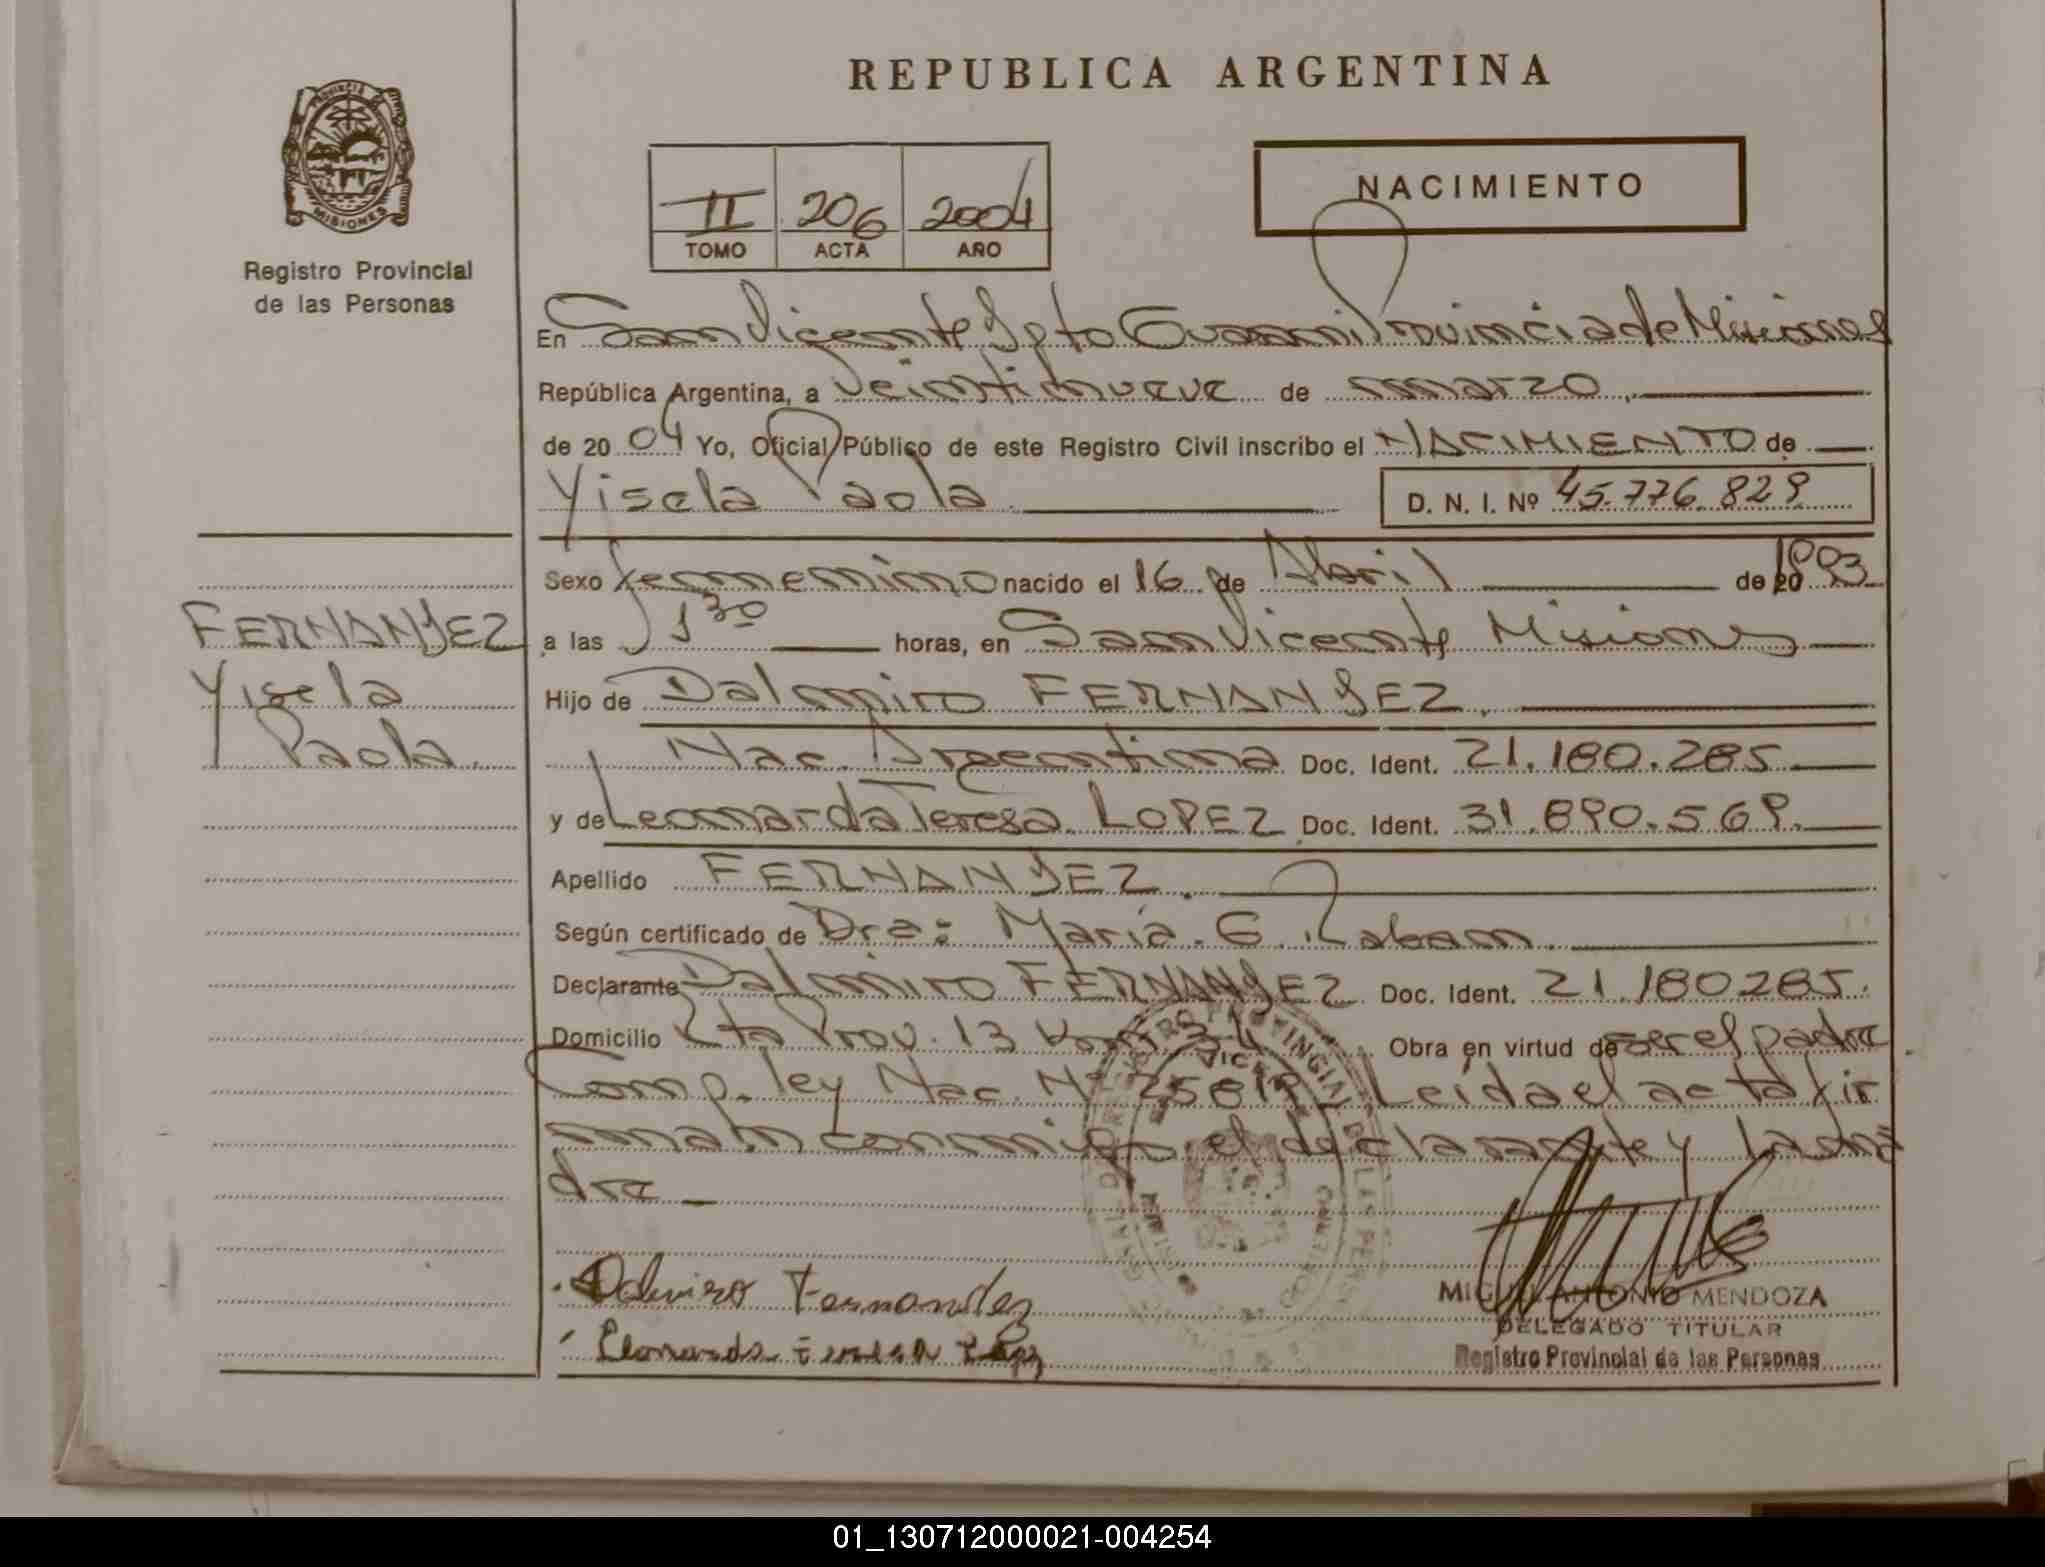 REPUBLICA ARGENTINA
PROVINCIA DE
MISIONES
Registro Provincial
de las Personas
II 206 2004
TOMO ACTA AÑO
NACIMIENTO
En San Vicente Dpto Guarani Provincia de Misiones
República Argentina, a veintinueve de marzo
de 2004 Yo, Oficial Público de este Registro Civil inscribo el NACIMIENTO de
Yisela Paola D. N. I. Nº 45.776.829
Sexo femenino nacido el 16 de Abril de 20 1993
a las 130 horas, en San Vicente Misiones
Hijo de Dalmiro FERNANDEZ.
Nac. Argentina Doc. Ident. 21.180.285
y de Leonarda Teresa LOPEZ Doc. Ident. 31.890.569.
Apellido FERNANDEZ.
Según certificado de Dra: Maria. G.
Declarante Dalmiro FERNANDEZ Doc. Ident. 21.180285.
Domicilio Rta Prov. 13 Km 34 Obra en virtud de ser el padre
Comp. ley Nac. Nº 25819 Leida el acta fir
man conmigo el declarante y la ma
dre
FERNANDEZ
Yisela
Paola.
Dalmiro Fernandez
Leonarda Teresa Lopez
MIGUEL ANTONIO MENDOZA
DELEGADO TITULAR
Registro Provincial de las Personas
01_130712000021-004254